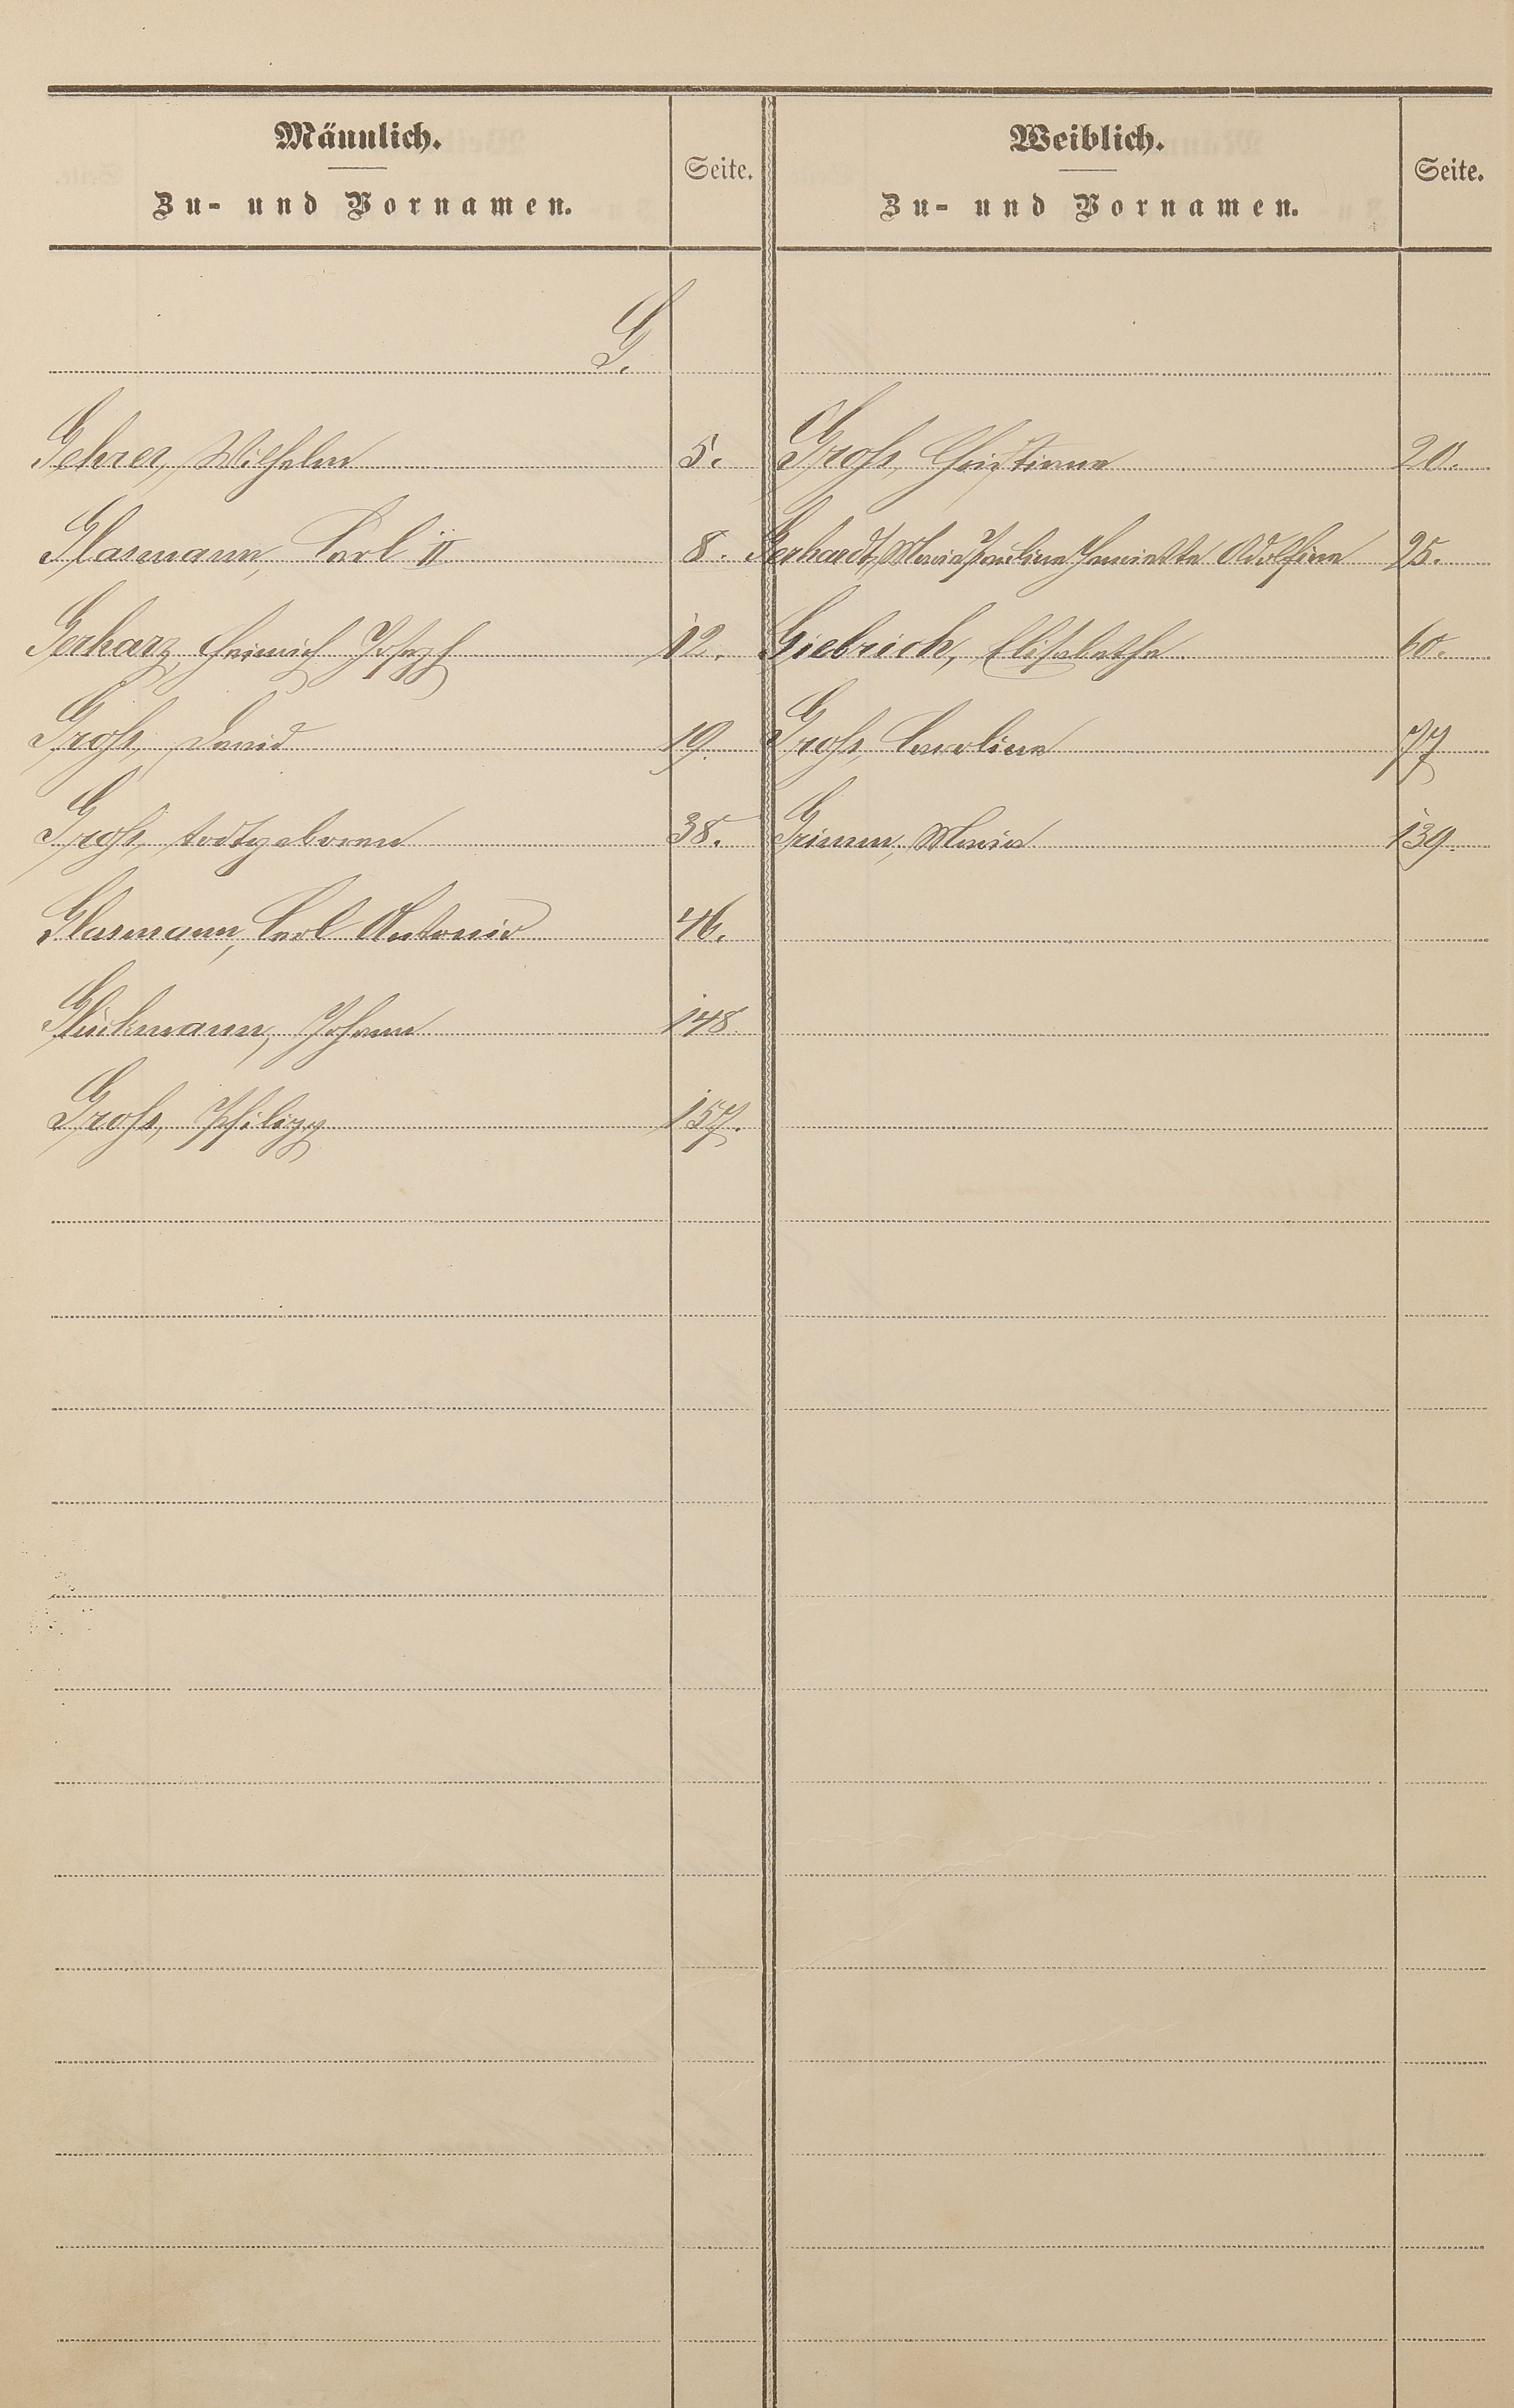 Männlich.
Zu- und Vornamen.
Seite.
Weiblich.
Zu- und Vornamen.
Seite.
G.
Gehrer, Wilhelm 5.
Glasmann, Carl II 8.
Gerharz, Heinrich Joseph 12.
Groß, David 19.
Groß, todtgeboren 38.
Glasmann, Carl Antonio 46.
Glückmann, Johann 148.
Groß, Philipp 157.
Groß, Christiane 20.
Gerhardt, Maria Pauline Henriette Adolfine 25.
Giebrich, Elisabetha 60.
Groß, Caroline 77
Grimm, Maria 139.